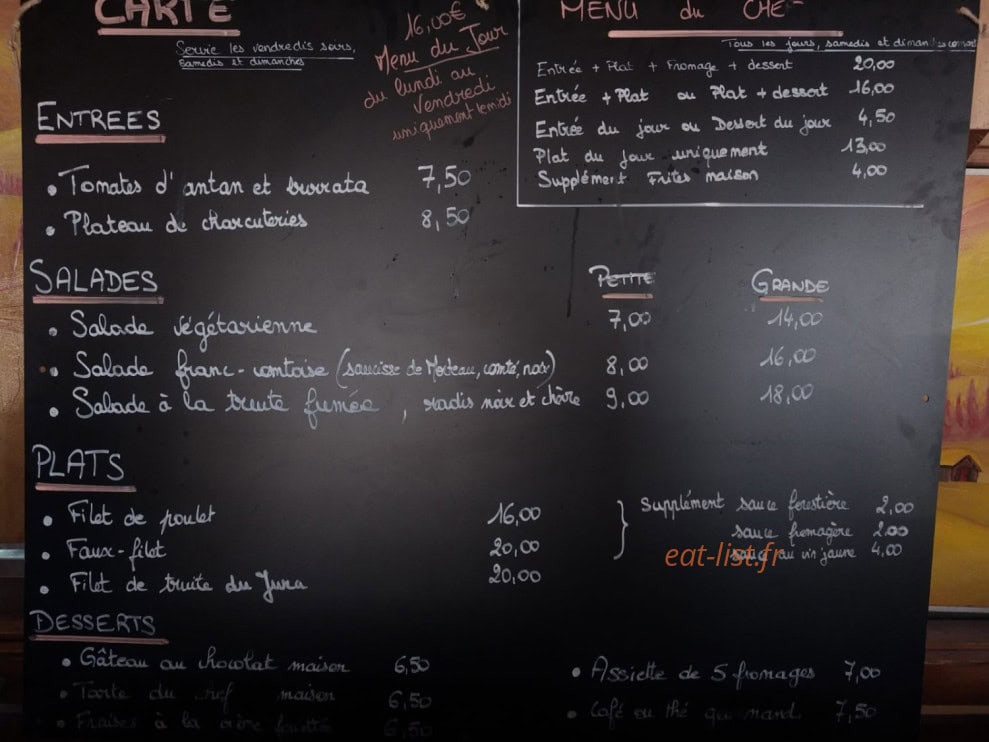 CARTE
Servie les vendredis soirs,
Samedis et dimanches
16,00€
Menu du Jour
du lundi au
Vendredi
uniquement le midi
MENU du CHE
Tous les jours, samedis et dimanches
Entrée + Plat + Fromage + dessert 20,00
Entrée + Plat ou Plat + dessert 16,00
Entrée du jour ou Dessert du jour 4,50
Plat du jour uniquement 13,00
Supplément Frites maison 4,00
ENTREES
• Tomates d'antan et burrata 7,50
• Plateau de charcuteries 8,50
SALADES PETITE GRANDE
• Salade végétarienne 7,00 14,00
• Salade franc-comtoise (saucisse de Morteau, comté, noix) 8,00 16,00
• Salade à la truite fumée, radis noir et chèvre 9,00 18,00
PLATS
• Filet de poulet 16,00
• Faux-filet 20,00
• Filet de truite du Jura 20,00
} Supplément sauce forestière 2,00
sauce fromagère 2.00
sauce au vin jaune 4,00
eat-list.fr
DESSERTS
• Gâteau au chocolat maison 6,50
• Tarte du chef maison 6,50
• Fraises à la crème fouettée 6,50
• Assiette de 5 fromages 7,00
• Café ou thé gourmand 7,50